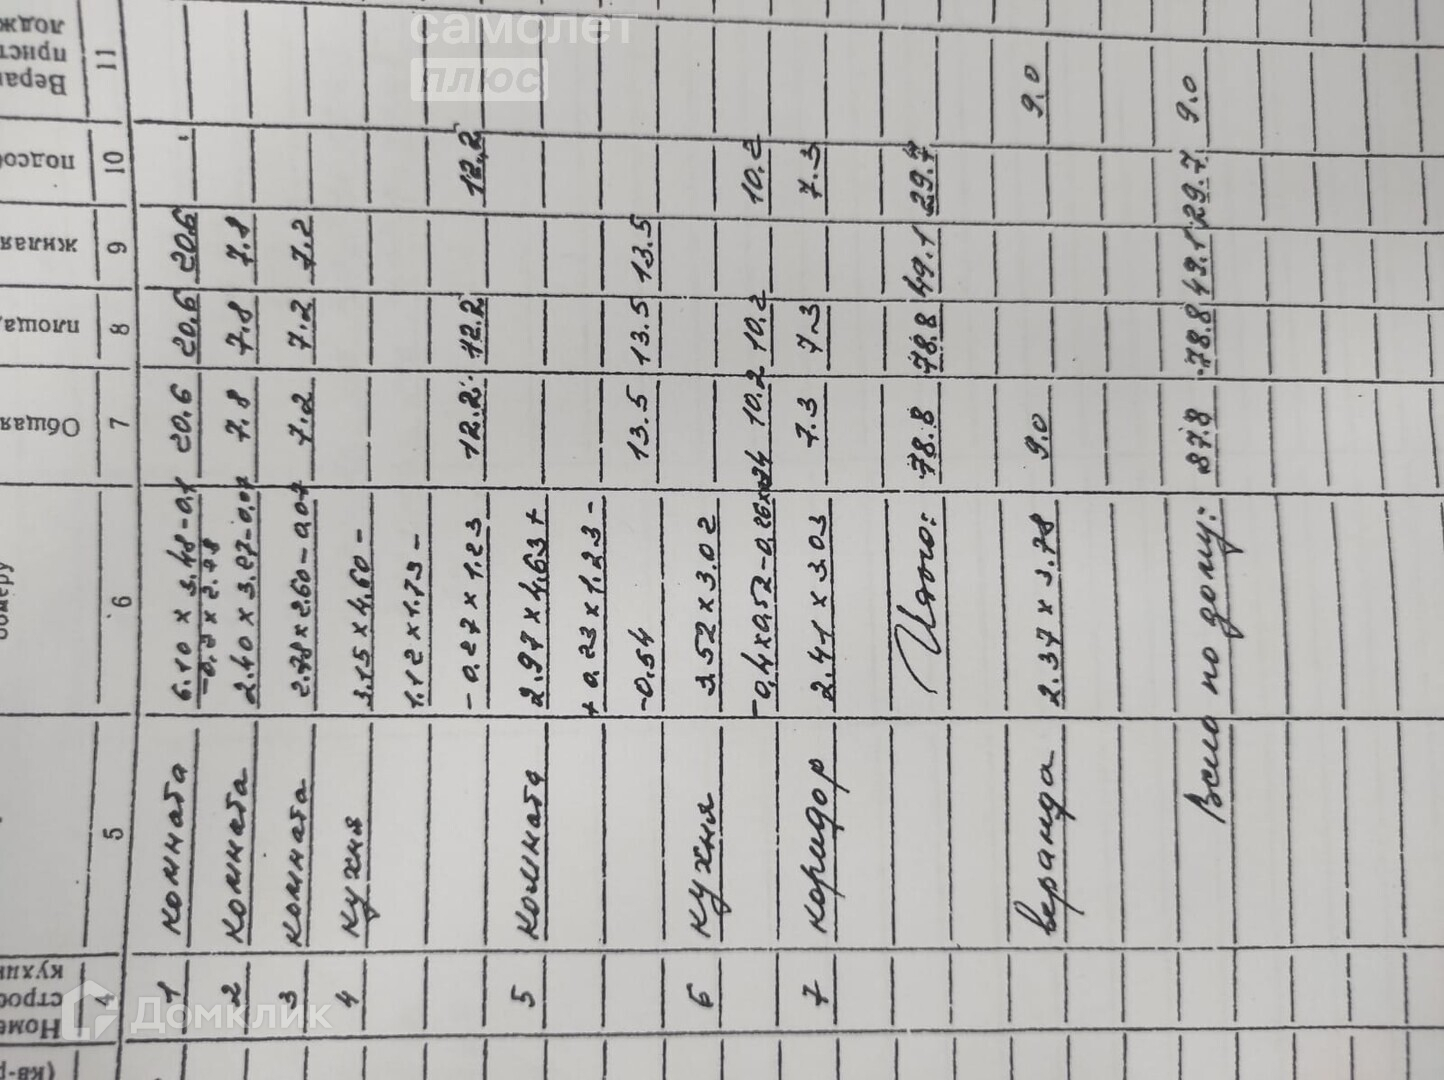 самолет
плюс
Домклик
4 5 6 7 8 9 10 11
1 комната 6.10 x 3.48-0.1 20.6 20.6 20.6
2 комната 2.40 x 3.27-0.07 7.8 7.8 7.8
3 комната 2.78 x 2.60-0.07 7.2 7.2 7.2
4 кухня 3.15 x 4.60 -
1.12 x 1.73 -
- 0.27 x 1.23 12.2 12.2 12.2
5 комната 2.97 x 4.63 +
+ 0.23 x 1.23 -
-0.54 13.5 13.5 13.5
6 кухня 3.52 x 3.02
-0.4x0.52-0.26x 10.2 10.2 10.2
7 коридор 2.41 x 3.03 7.3 7.3 7.3
Итого: 78.8 78.8 49.1 29.7
веранда 2.37 x 3.78 9.0 9.0
Всего по дому: 87.8 78.8 49.1 29.7 9.0